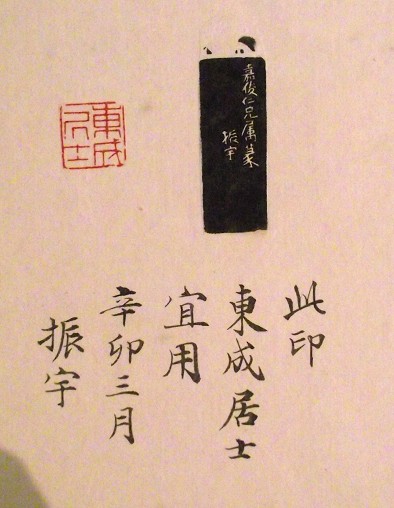 嘉俊仁兄属篆
振宇
東成
居士
此印
東成居士
宜用
辛卯三月
振宇